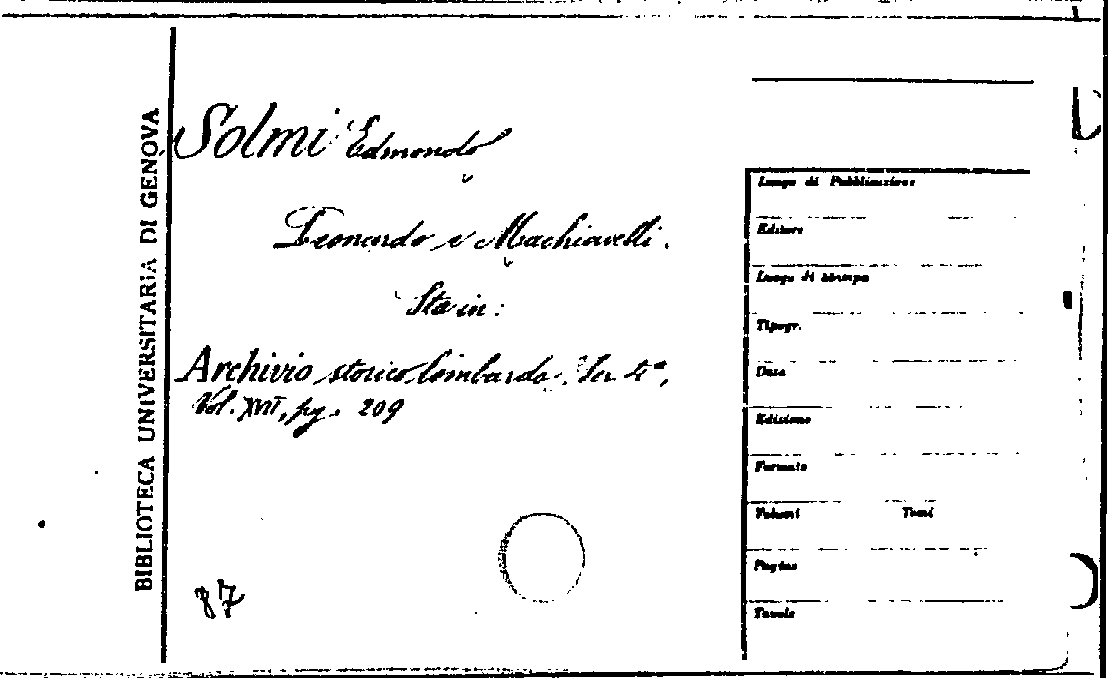 BIBLIOTECA UNIVERSITARIA DI GENOVA
Solmi Edmondo
Leonardo e Machiavelli.
Sta in:
Archivio storico lombardo. Ser 4ª,
Vol. XVII, pg. 209
87
Luogo di Pubblicazione
Editore
Luogo di stampa
Tipogr.
Data
Edizione
Formato
Volumi Tomi
Pagine
Tavole